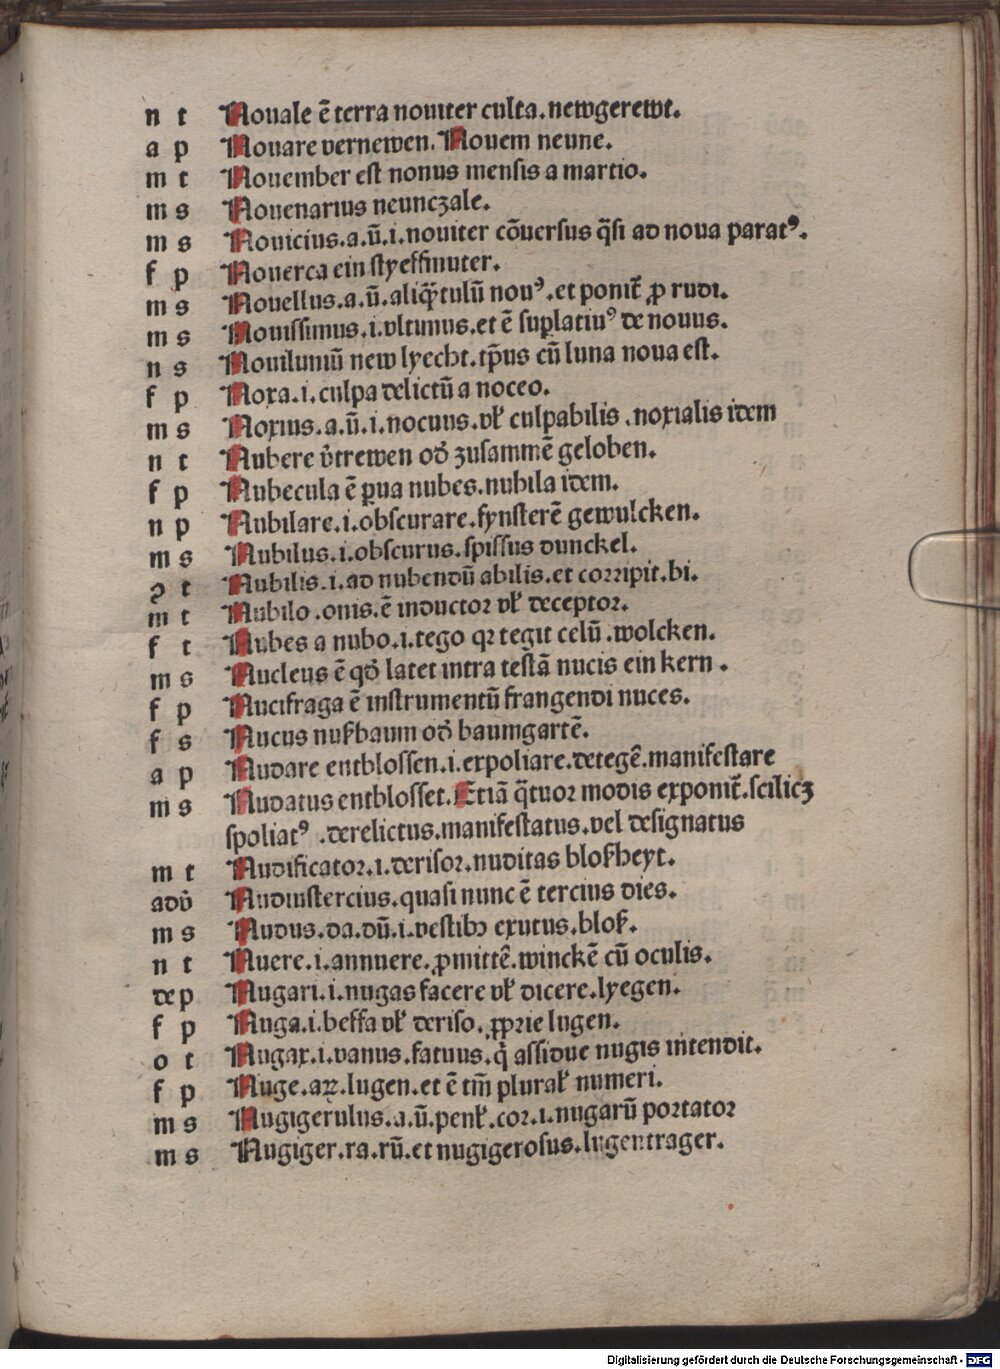 n t Nouale ē terra nouiter culta. newgerewt.
a p Nouare vernewen. Nouem neune.
m t Nouember est nonus mensis a martio.
m s Nouenarius neunczale.
m s Nouicius.a.ū.i.nouiter cōuersus q̄si ad noua paratꝰ.
f p Nouerca ein styeffmuter.
m s Nouellus.a.ū.aliq̄tulū nouꝰ.et ponit̄ ꝓ rudi.
m s Nouissimus.i.vltimus.et ē suꝑlatiuꝰ de nouus.
n s Nouiluniū new lyecht.tp̄us cū luna noua est.
f p Noxa.i.culpa delictū a noceo.
m s Noxius.a.ū.i.nocuus.vl̛ culpabilis .noxialis idem
n t Nubere v̓trewen od̓ zusammē geloben.
f p Nubecula ē ꝑua nubes.nubila idem.
n p Nubilare.i.obscurare.fynsterē gewulcken.
m s Nubilus.i.obscurus.spissus dunckel.
ꝯ t Nubilis.i.ad nubendū abilis.et corripit.bi.
m t Nubilo.onis.ē inductor vl̛ deceptor.
f t Nubes a nubo.i.tego qꝛ tegit celū .wolcken.
m s Nucleus ē qd̓ latet intra testā nucis ein kern .
f p Nucifraga ē instrumentū frangendi nuces.
f s Nucus nußbaum od̓ baumgartē.
a p Nudare entblossen.i.expoliare.detegē.manifestare
m s Nudatus entblosset. Etiā q̄tuor modis exponit̄.scilicꝫ
spoliatꝰ .derelictus.manifestatus.vel designatus
m t Nudificator.i.derisor.nuditas bloßheyt.
adv̓ Nudiustercius.quasi nunc ē tercius dies.
m s Nudus.da.dū.i.vestibꝫ exutus.bloß.
n t Nuere.i.annuere.ꝓmittē.winckē cū oculis.
de p Nugari.i.nugas facere vl̛ dicere.lyegen.
f p Nuga.i.beffa vl̛ deriso.ꝓprie lugen.
o t Nugax.i.vanus.fatuus.q̇ assidue nugis intendit.
f p Nuge.aꝝ.lugen.et ē tm̄ plural̛ numeri.
m s Nugigerulus.a.ū.penl̛.cor.i.nugarū portator
m s Nugiger.ra.rū.et nugigerosus.lugentrager.
Digitalisierung gefördert durch die Deutsche Forschungsgemeinschaft - DFG